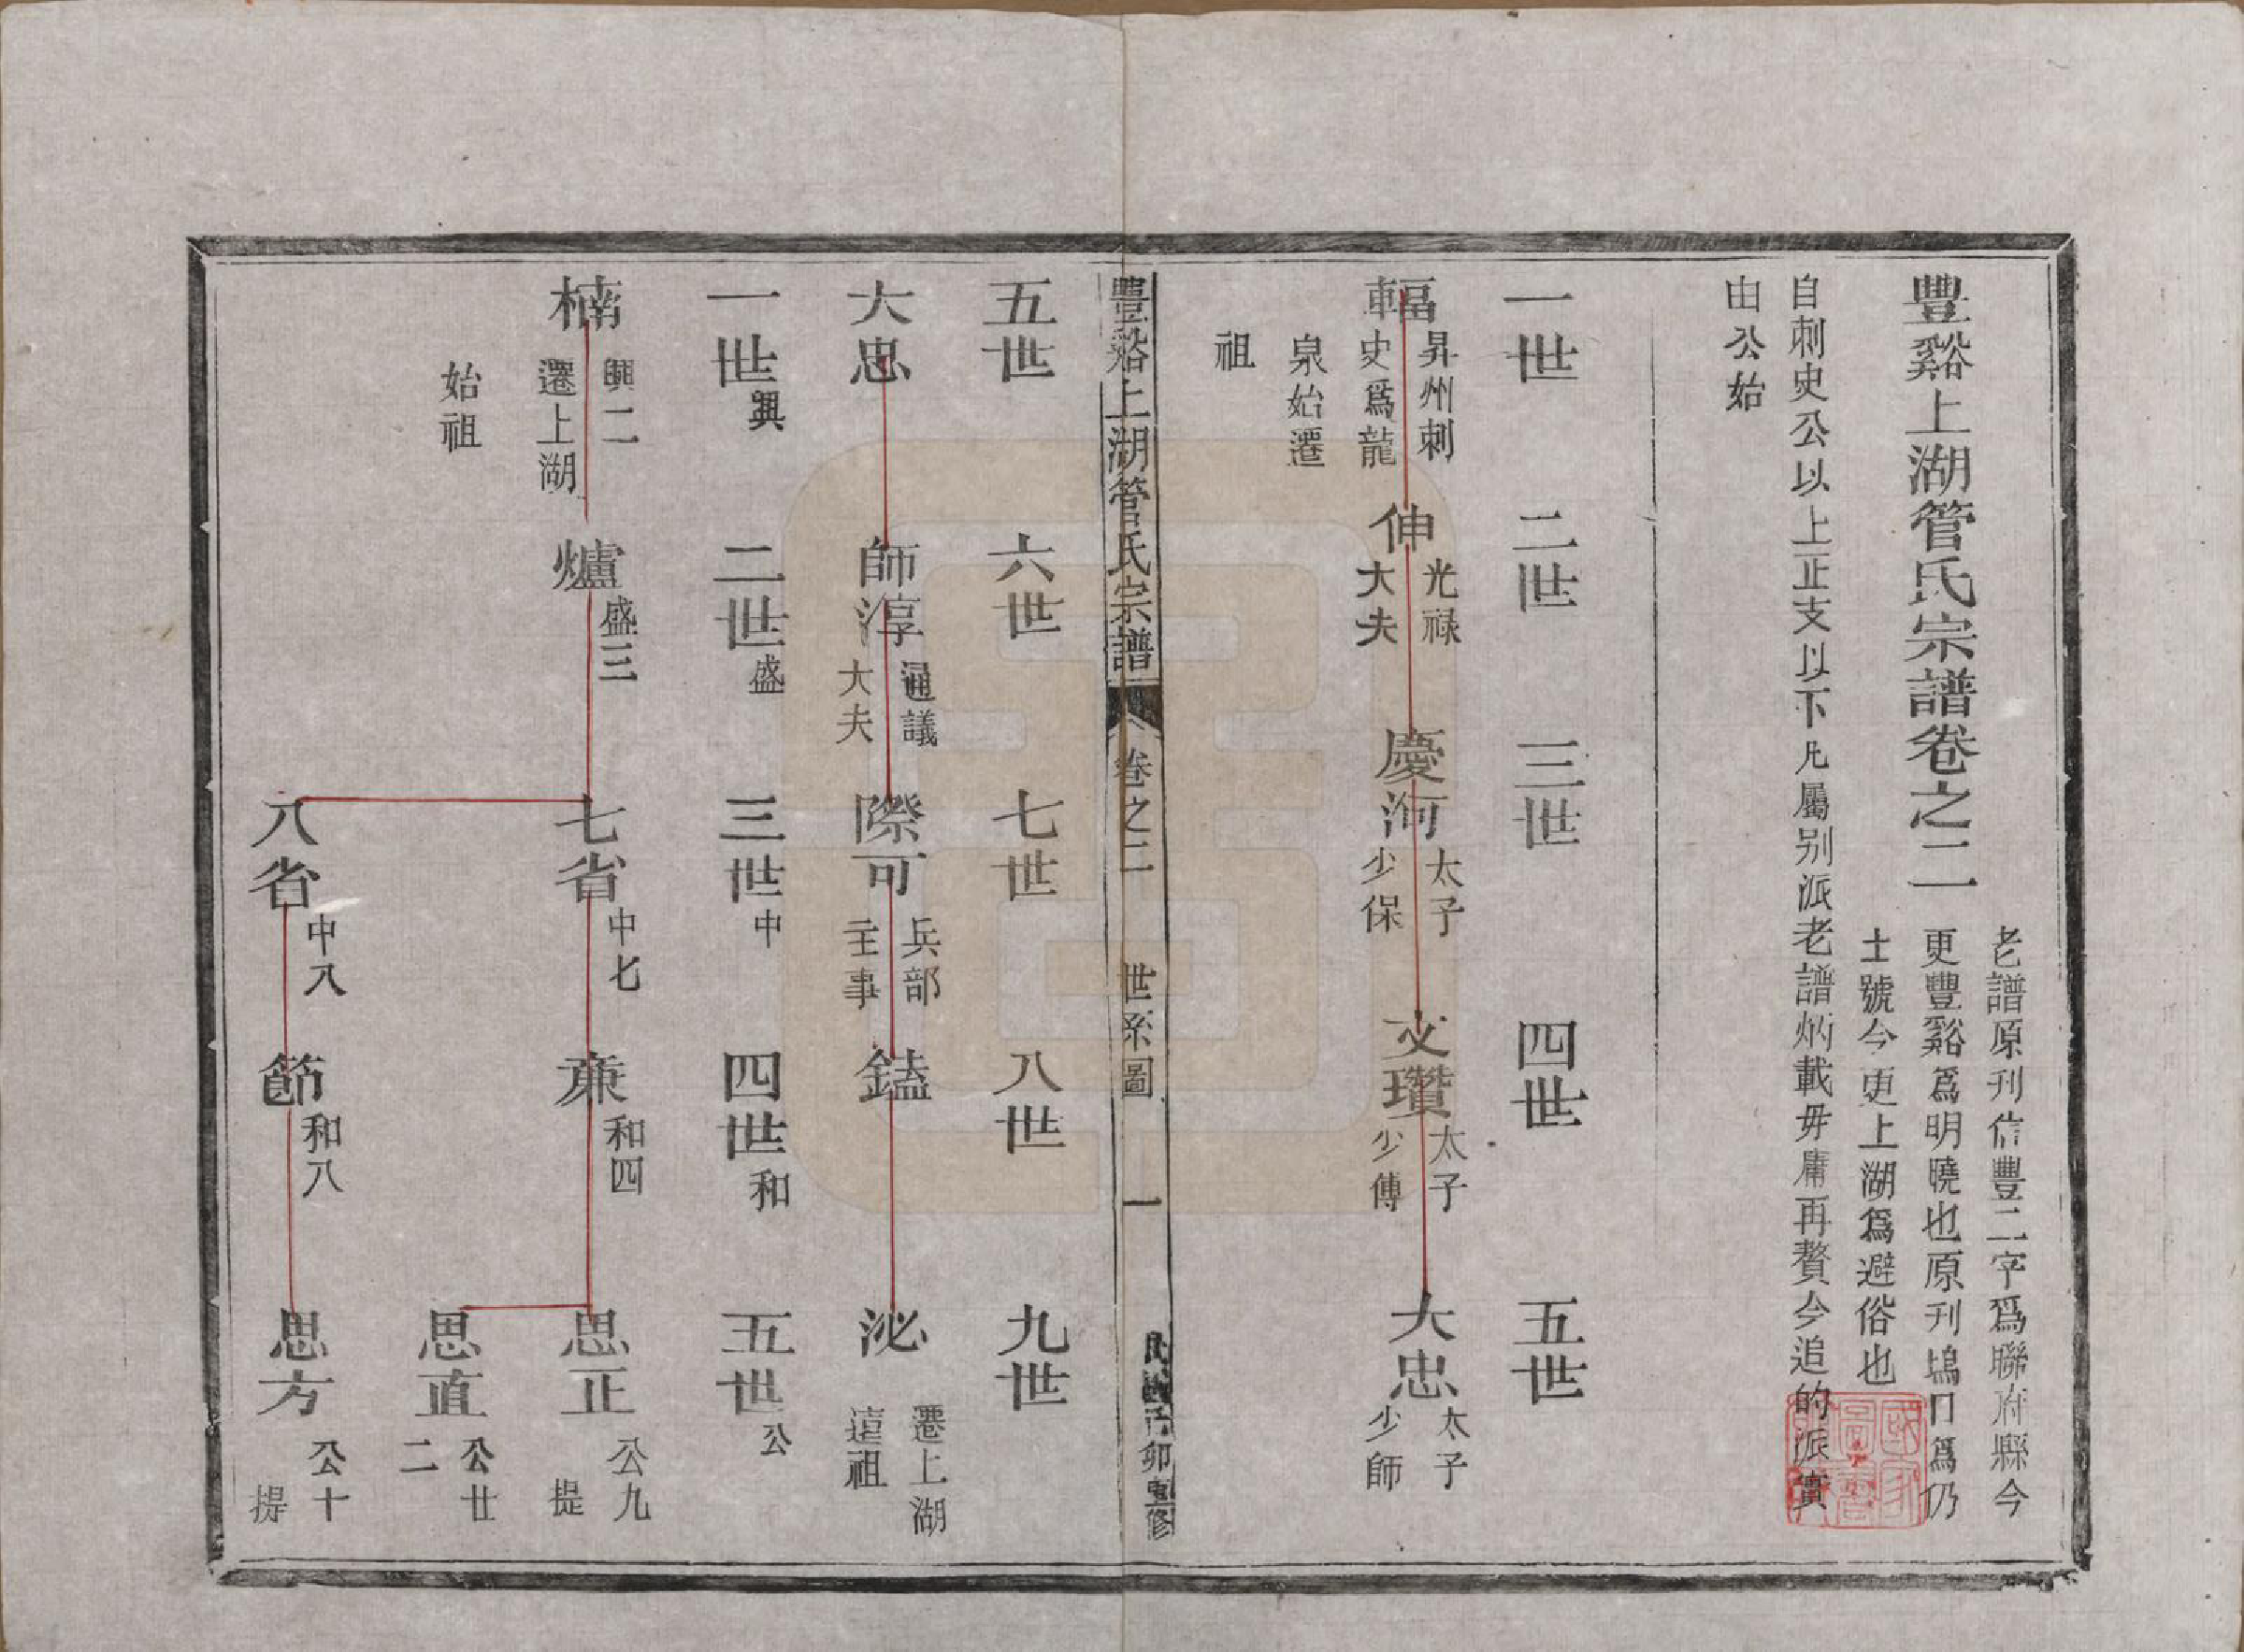 豐谿上湖管氏宗譜卷之二
老譜原刊信豐二字爲聯府縣今
更豐谿爲明曉也原刊塢口爲仍
土號今更上湖爲避俗也
自刺史公以上止支以下凡屬别派老譜炳載毋庸再贅今追的派實
由公始
一世
二世
三世
四世
五世
輻
昇州刺
史爲龍
泉始遷
祖
伸
光祿
大夫
慶河
太子
少保
文瓚
太子
少傅
大忠
太子
少師
豐谿上湖管氏宗譜
卷之二
世系圖
一
民國己卯重修
五世
六世
七世
八世
九世
大忠
師淳
通議
大夫
際可
兵部
主事
鎑
泌
遷上湖
遠祖
一世興
二世盛
三世中
四世和
五世公
楠
興二
遷上湖
始祖
爐
盛三
七省
中七
秉
和四
思正
公九
提
思直
公廿
二
八省
中八
節
和八
思方
公十
提